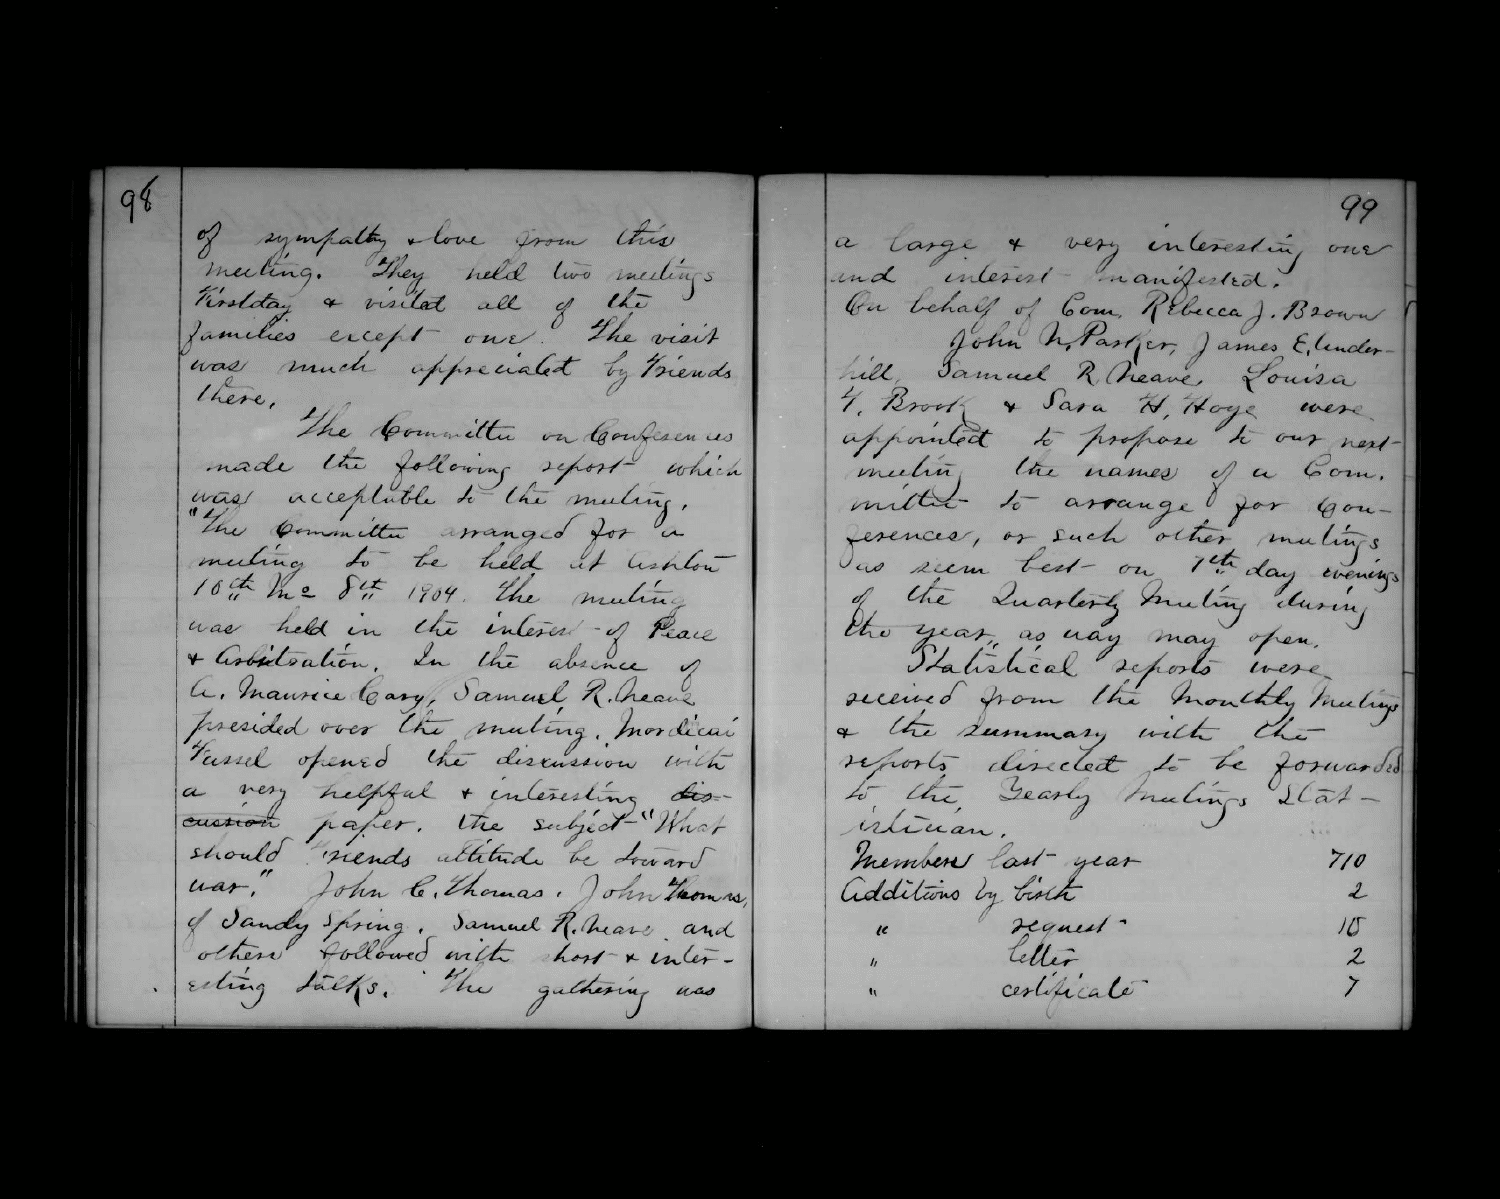 98
of sympathy & love from this
meeting. They held two meetings
Firstday & visited all of the
families except one. The visit
was much appreciated by Friends
there.
The Committee on Conferences
made the following report which
was acceptable to the meeting.
"The Committee arranged for a
meeting to be held at Ashton
10th Mo 8th 1904. The meeting
was held in the interest of Peace
& Arbitration. In the absence of
A. Maurice Cary, Samuel R. Neave
presided over the meeting. Mordicai
Fussel opened the discussion with
a very helpful & interesting dis-
cussion paper. The subject "What
should Friends attitude be toward
war." John C. Thomas. John Thomas,
of Sandy Spring. Samuel R. Neave and
others followed with short & inter-
esting talks. The gathering was
99
a large & very interesting one
and interest manifested.
On behalf of Com. Rebecca J. Brown
John N. Parker, James E. Under-
hill, Samuel R Neave, Louisa
F. Brook & Sara H. Hoge were
appointed to propose to our next
meeting the names of a Com.
mittee to arrange for Con-
ferences, or such other meetings
as seem best on 7th day evenings
of the Quarterly Meeting during
the year, as way may open.
Statistical reports were
received from the Monthly Meetings
& the summary with the
reports directed to be forwarded
to the Yearly Meetings Stat-
istician.
Members last year 710
Additions by birth 2
" request
" letter 2
" certificate 7